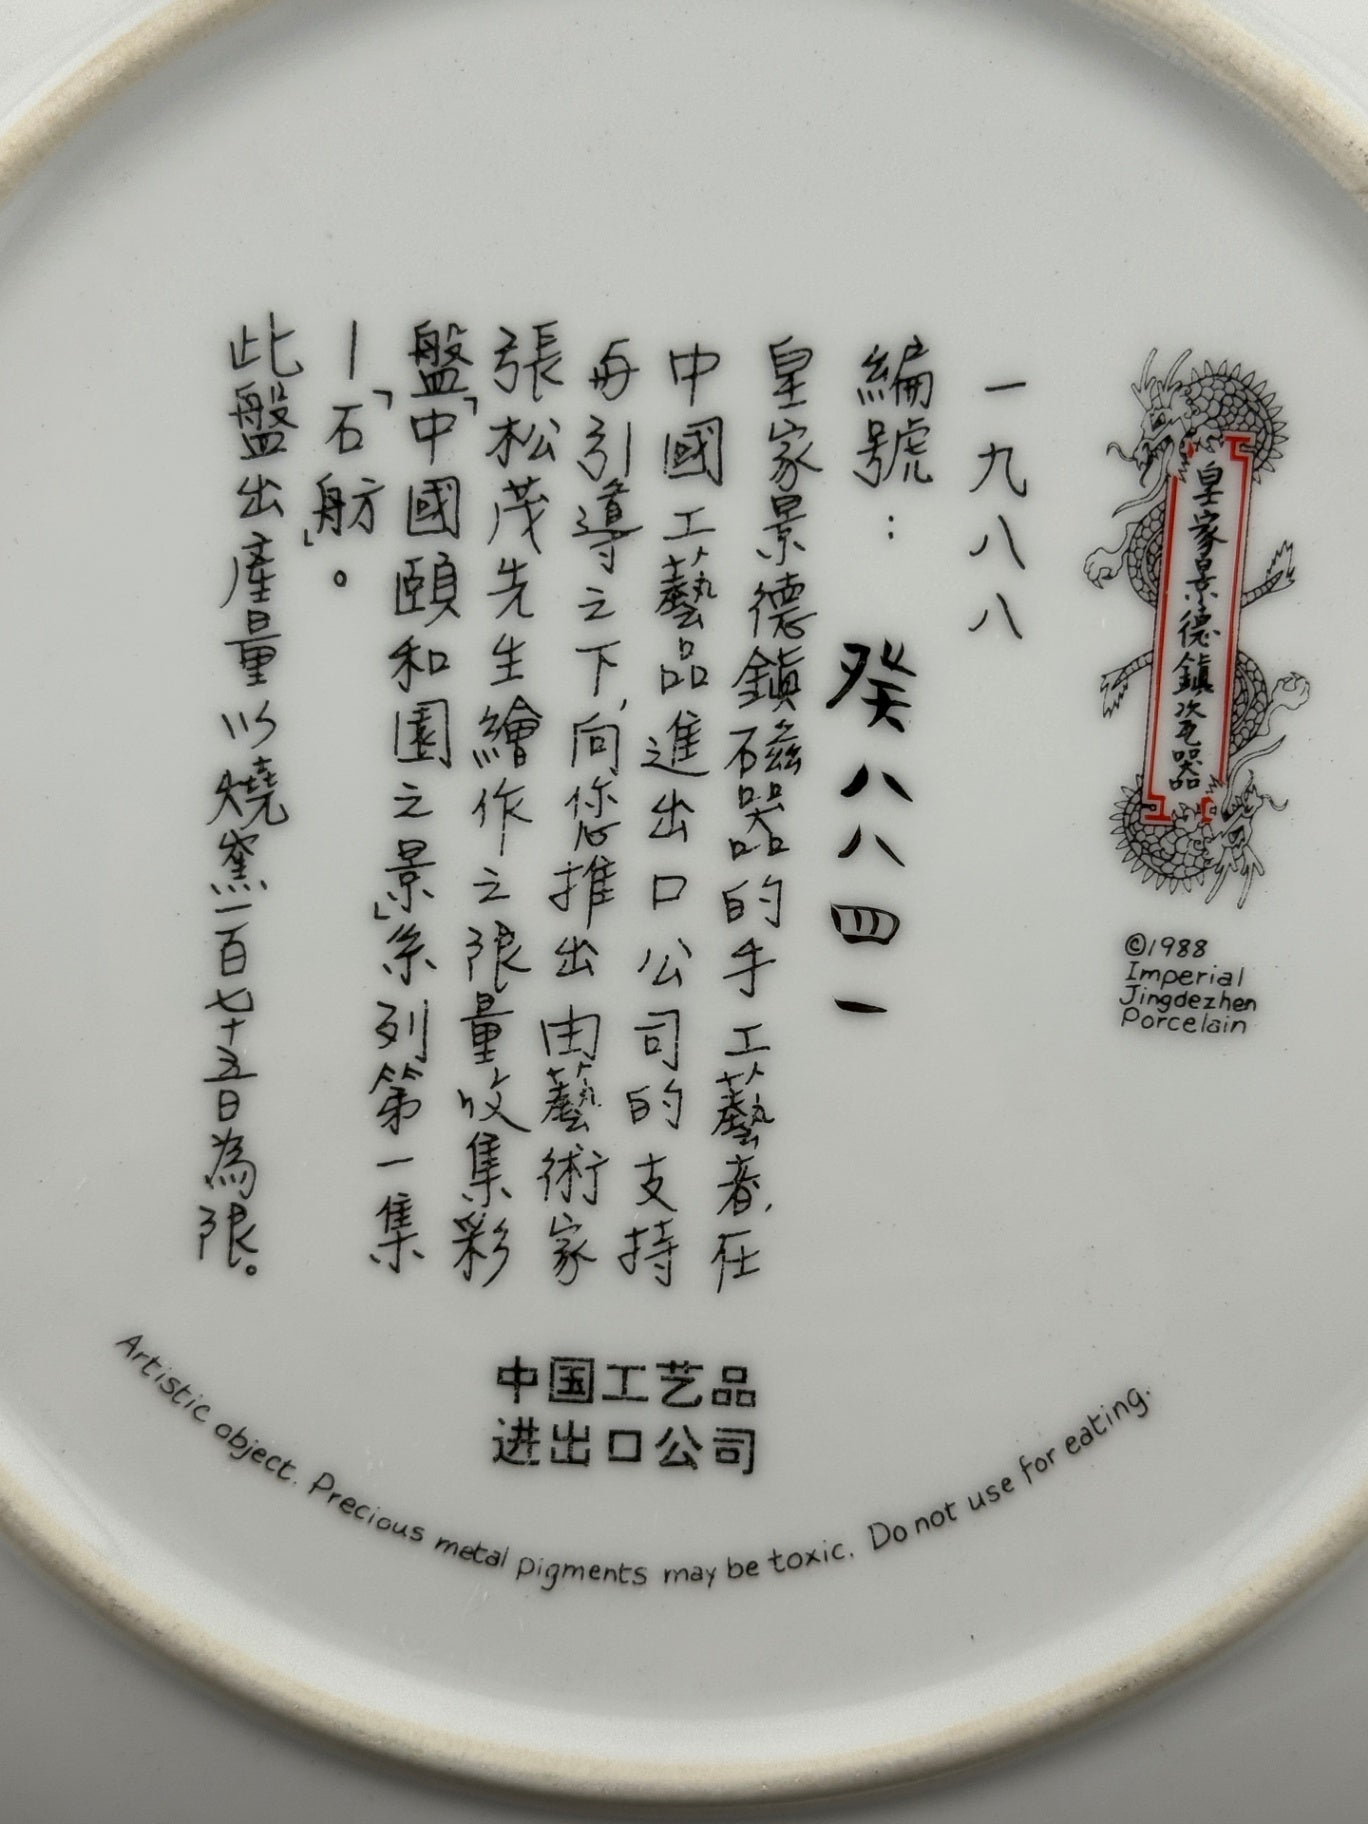 皇家景德鎮瓷器
©1988
Imperial
Jingdezhen
Porcelain
一九八八
編號：癸八八四一
皇家景德鎮磁器的手工藝者，在
中國工藝品進出口公司的支持
與引導之下，向您推出由藝術家
張松茂先生繪作之限量收集彩
盤「中國頤和園之景」系列第一集
—「石舫」。
此盤出產量以燒窯一百七十五日為限。
中国工艺品
进出口公司
Artistic object. Precious metal pigments may be toxic. Do not use for eating.